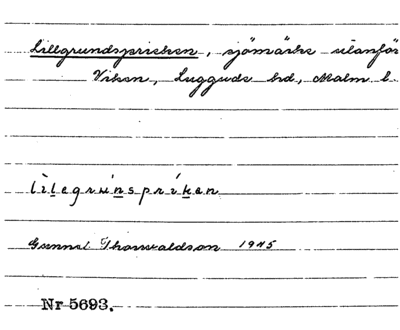 Lillgrundspricken, sjömärke utanför
Viken, Luggude hd, Malm. l.
lìlegrɯnspríken
Gunnel Thorwaldson 1945
Nr 5693.